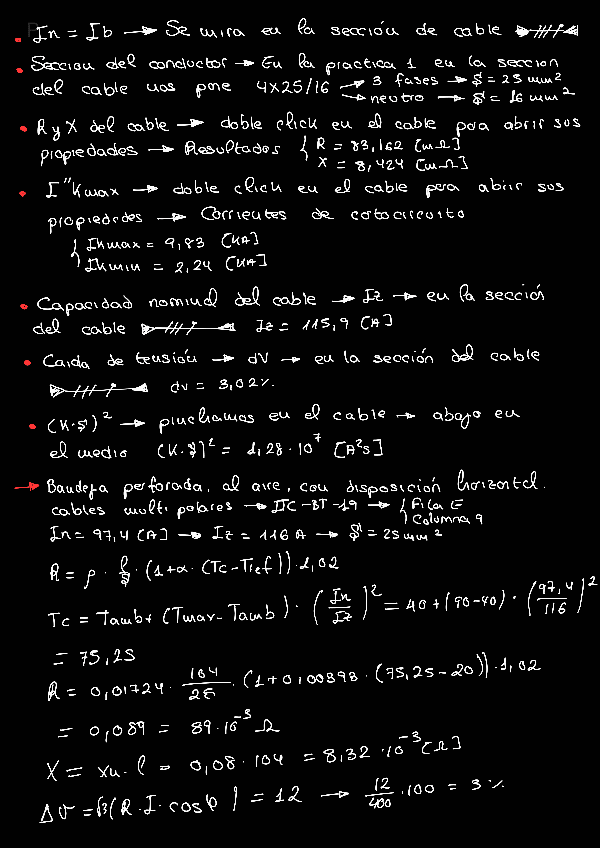 • In = Ib → Se mira en la sección de cable
• Seccion del conductor → En la practica 1 en la seccion
del cable nos pone 4x25/16 → 3 fases → S = 25 mm²
→ neutro → S = 16 mm²
• R y X del cable → doble click en el cable para abrir sus
propiedades → Resultados { R = 83,162 [mΩ]
X = 8,424 [mΩ]
• I"Kmax → doble click en el cable para abrir sus
propiedades → Corrientes de cotocircuito
{ Ikmax = 9,83 [KA]
Ikmin = 2,24 [KA]
• Capacidad nominal del cable → Iz → en la sección
del cable Iz = 115,9 [A]
• Caida de tensión → dV → en la sección del cable
dv = 3,02%.
• (K·S)² → pinchamos en el cable → abajo en
el medio (K·S)² = 1,28·10⁷ [A²s]
→ Bandeja perforada, al aire, con disposición horizontal.
cables multipolares → ITC-BT-19 → { Fila E
Columna 9
In = 97,4 [A] → Iz = 116 A → S = 25 mm²
R = ρ · l/S · (1+α·(Tc-Tref))·1,02
Tc = Tamb + (Tmax-Tamb) · (In/Iz)² = 40+(90-40)·(97,4/116)²
= 75,25
R = 0,01724 · 104/25 · (1+0,00393·(75,25-20))·1,02
= 0,089 = 89·10⁻³ Ω
X = xu·l = 0,08·104 = 8,32·10⁻³ [Ω]
Δv = √3(R·I·cosφ) = 12 → 12/400·100 = 3%